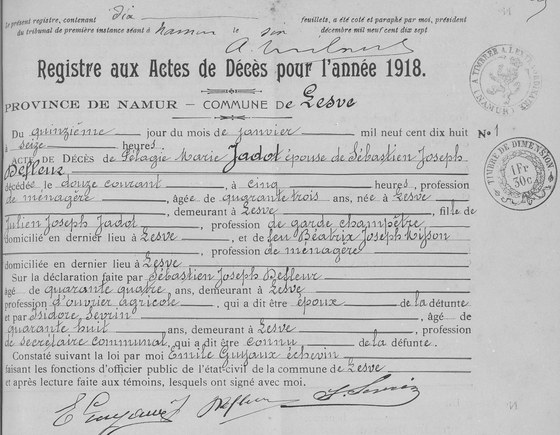 Le présent registre, contenant dix feuillets, a été coté et paraphé par moi, président
du tribunal de première instance séant à Namur, le six décembre mil neuf cent dix sept
Registre aux Actes de Décès pour l'année 1918.
PROVINCE DE NAMUR — COMMUNE De Lesve
Du quinzième jour du mois de janvier mil neuf cent dix huit
à seize heures.
No 1
ACTE DE DÉCÈS de Pélagie Marie Jadot épouse de Sébastien Joseph
Defleur
décédée le douze courant, à cinq heures, profession
de ménagère, âgée de quarante trois ans, née à Lesve
, demeurant à Lesve, fille de
Julien Joseph Jadot, profession de garde champêtre
domicilié en dernier lieu à Lesve, et de feu Béatrix Joseph
, profession de ménagère
domiciliée en dernier lieu à Lesve
Sur la déclaration faite par Sébastien Joseph Defleur
âgé de quarante quatre ans, demeurant à Lesve
profession d'ouvrier agricole, qui a dit être époux de la défunte
et par Isidore Sevrin, âgé de
quarante huit ans, demeurant à Lesve, profession
de secrétaire communal, qui a dit être connu de la défunte.
Constaté suivant la loi par moi Emile Guyaux échevin
faisant les fonctions d'officier public de l'état-civil de la commune de Lesve
et après lecture faite aux témoins, lesquels ont signé avec moi.
E Guyaux Defleur I. Sevrin
TIMBRE DE DIMENSION
1 Fr
30c